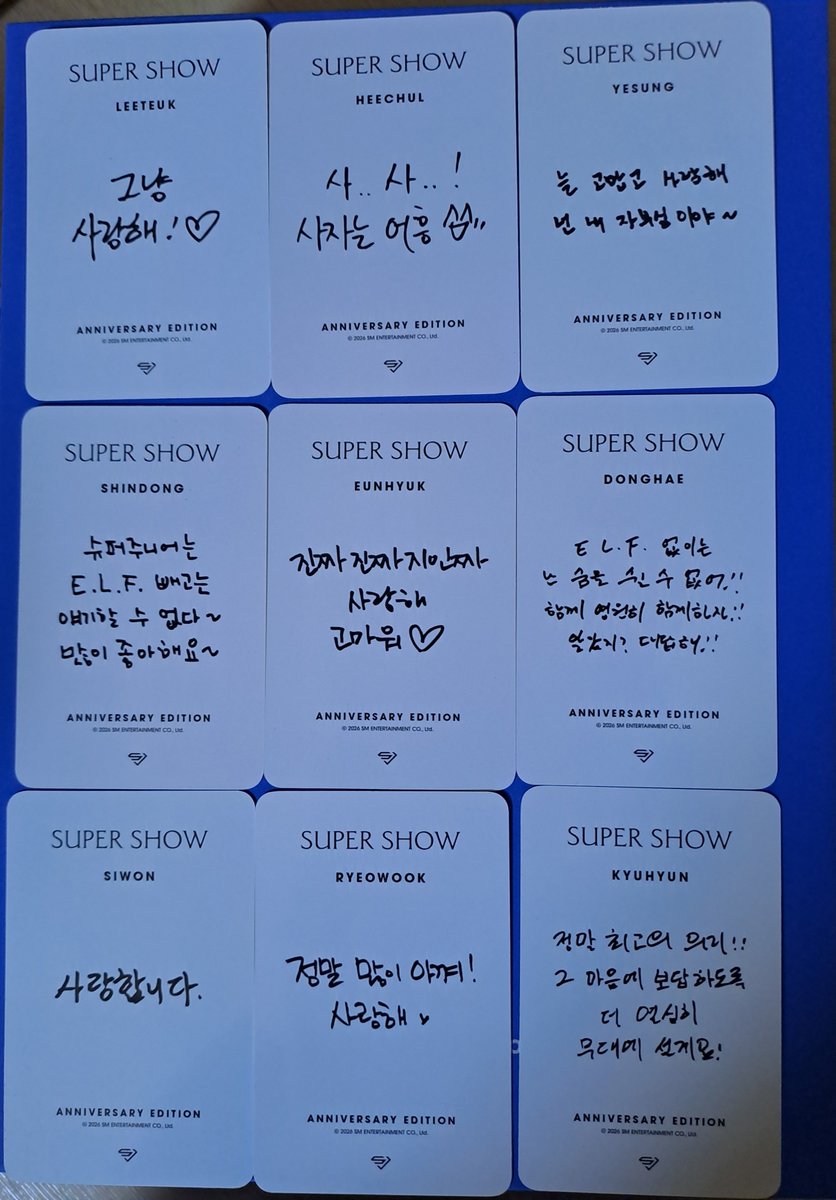 SUPER SHOW
LEETEUK
그냥
사랑해!♡
ANNIVERSARY EDITION
© 2026 SM ENTERTAINMENT CO., Ltd.
SUPER SHOW
HEECHUL
사.. 사..!
사자는 어흥
ANNIVERSARY EDITION
© 2026 SM ENTERTAINMENT CO., Ltd.
SUPER SHOW
YESUNG
늘 고맙고 사랑해
넌 내 자부심이야~
ANNIVERSARY EDITION
© 2026 SM ENTERTAINMENT CO., Ltd.
SUPER SHOW
SHINDONG
슈퍼주니어는
E.L.F. 빼고는
얘기할 수 없다~
많이 좋아해요~
ANNIVERSARY EDITION
© 2026 SM ENTERTAINMENT CO., Ltd.
SUPER SHOW
EUNHYUK
진짜 진짜 지인짜
사랑해
고마워♡
ANNIVERSARY EDITION
© 2026 SM ENTERTAINMENT CO., Ltd.
SUPER SHOW
DONGHAE
E.L.F. 없이는
숨을 쉴 수 없어!!
함께 영원히 함께하자!!
알았지? 대답해!!
ANNIVERSARY EDITION
© 2026 SM ENTERTAINMENT CO., Ltd.
SUPER SHOW
SIWON
사랑합니다.
ANNIVERSARY EDITION
© 2026 SM ENTERTAINMENT CO., Ltd.
SUPER SHOW
RYEOWOOK
정말 많이 아껴!
사랑해
ANNIVERSARY EDITION
© 2026 SM ENTERTAINMENT CO., Ltd.
SUPER SHOW
KYUHYUN
정말 최고의 의리!!
그 마음에 보답하도록
더 열심히
무대에 설게요!
ANNIVERSARY EDITION
© 2026 SM ENTERTAINMENT CO., Ltd.